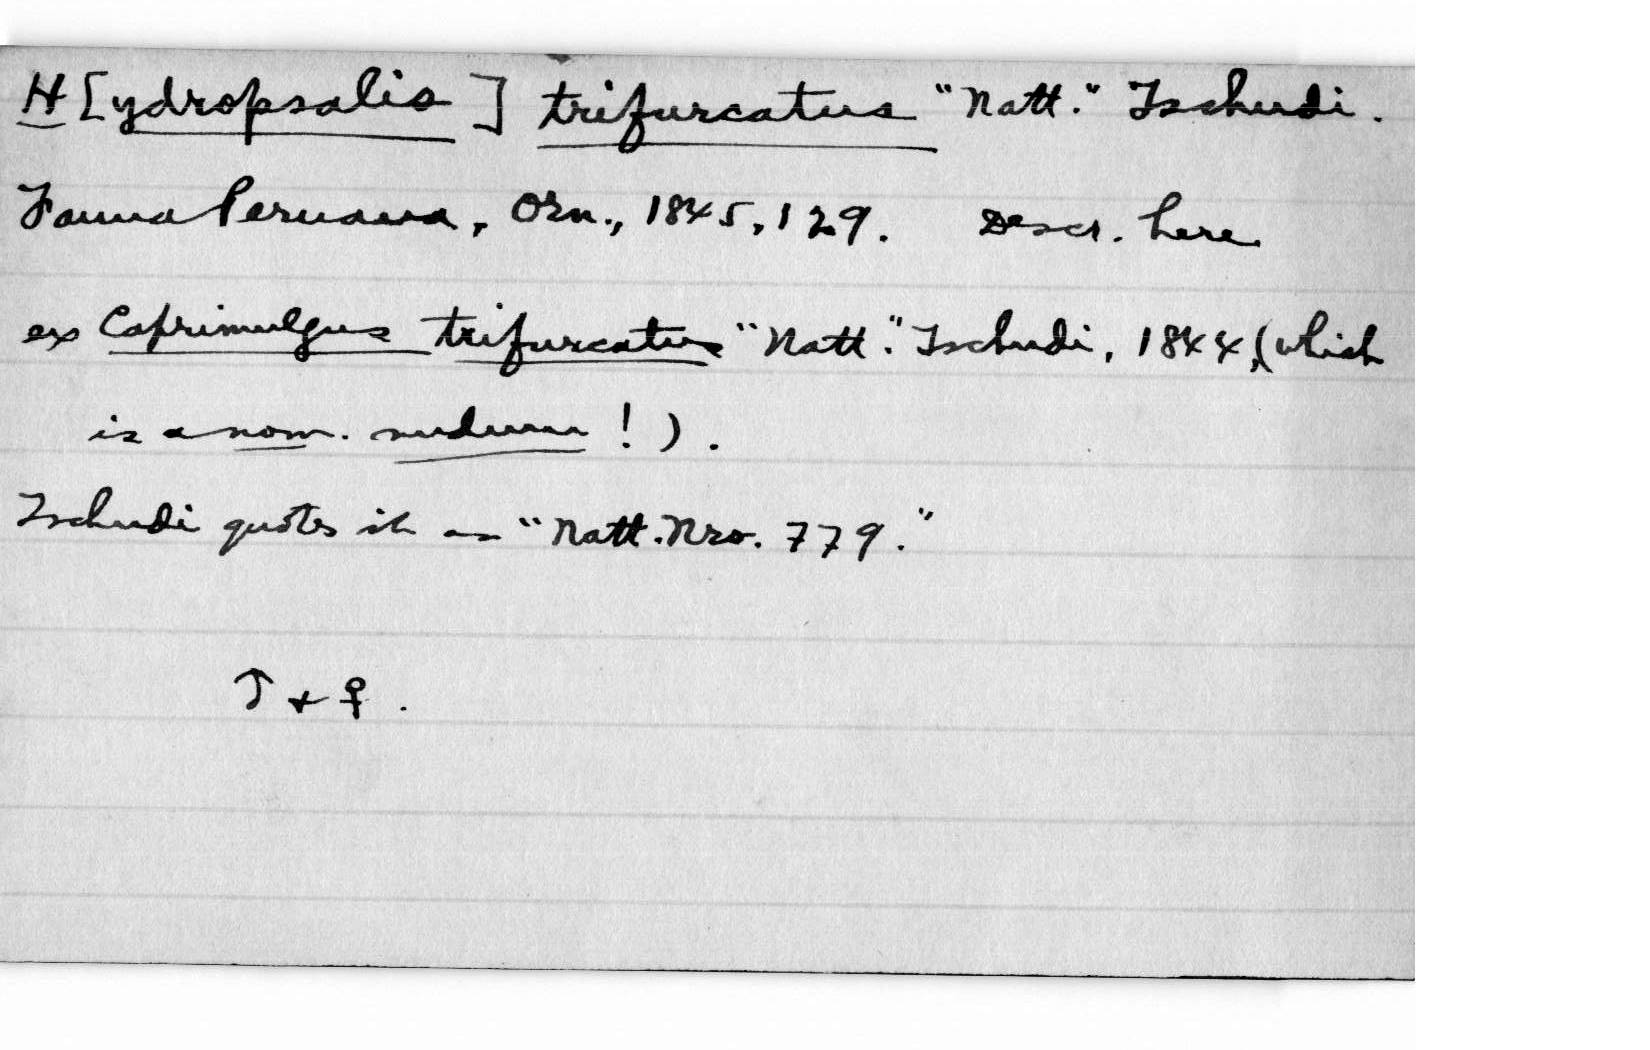 H[ydropsalis] trifurcatus "Natt." Tschudi.
Fauna Peruana, Orn., 1845, 129. Descr. here
ex Caprimulgus trifurcatus "Natt." Tschudi, 1844, (which
is a nom. nudum!).
Tschudi quotes it as "Natt. Nro. 779."
♂ + ♀.